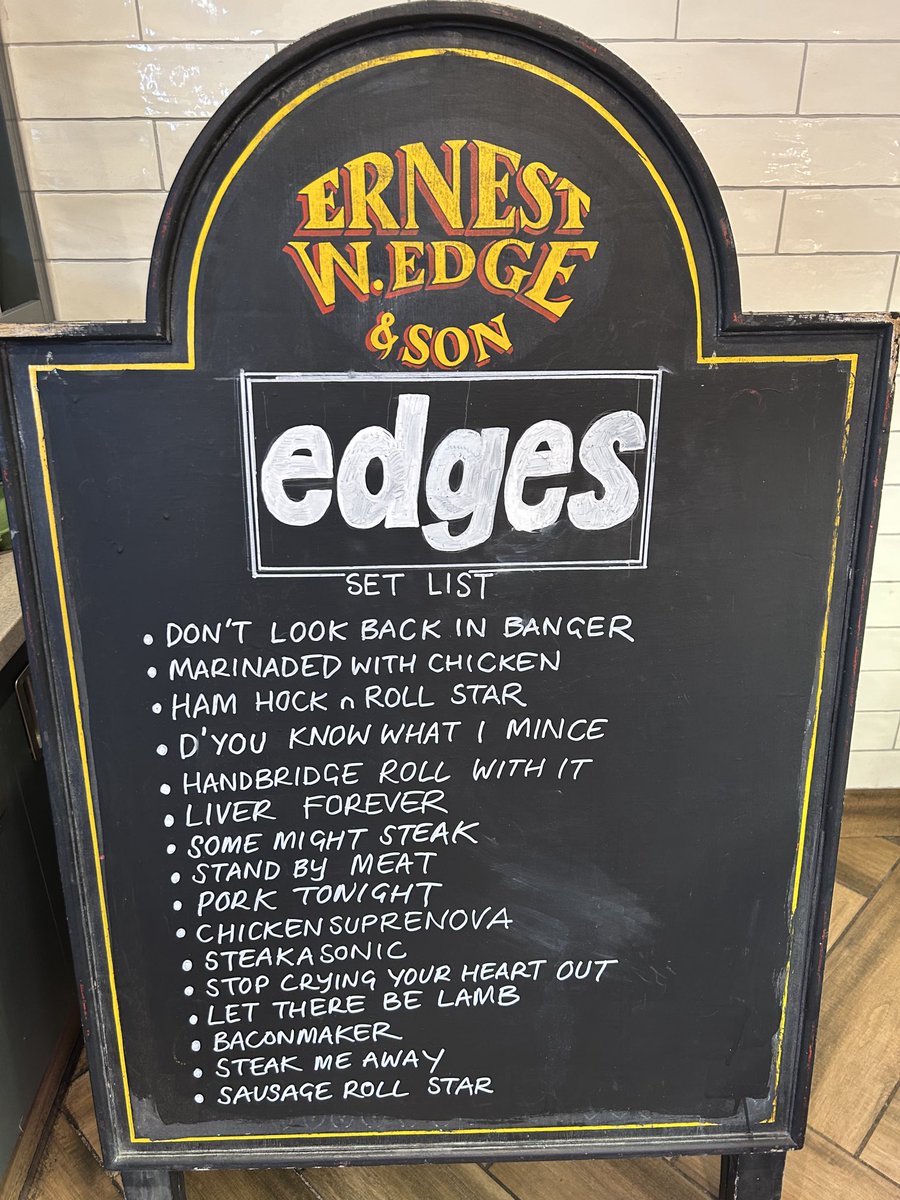 ERNEST
W. EDGE
& SON
edges
SET LIST
• DON'T LOOK BACK IN BANGER
• MARINADED WITH CHICKEN
• HAM HOCK n ROLL STAR
• D'YOU KNOW WHAT I MINCE
• HANDBRIDGE ROLL WITH IT
• LIVER FOREVER
• SOME MIGHT STEAK
• STAND BY MEAT
• PORK TONIGHT
• CHICKEN SUPRENOVA
• STEAKASONIC
• STOP CRYING YOUR HEART OUT
• LET THERE BE LAMB
• BACONMAKER
• STEAK ME AWAY
• SAUSAGE ROLL STAR